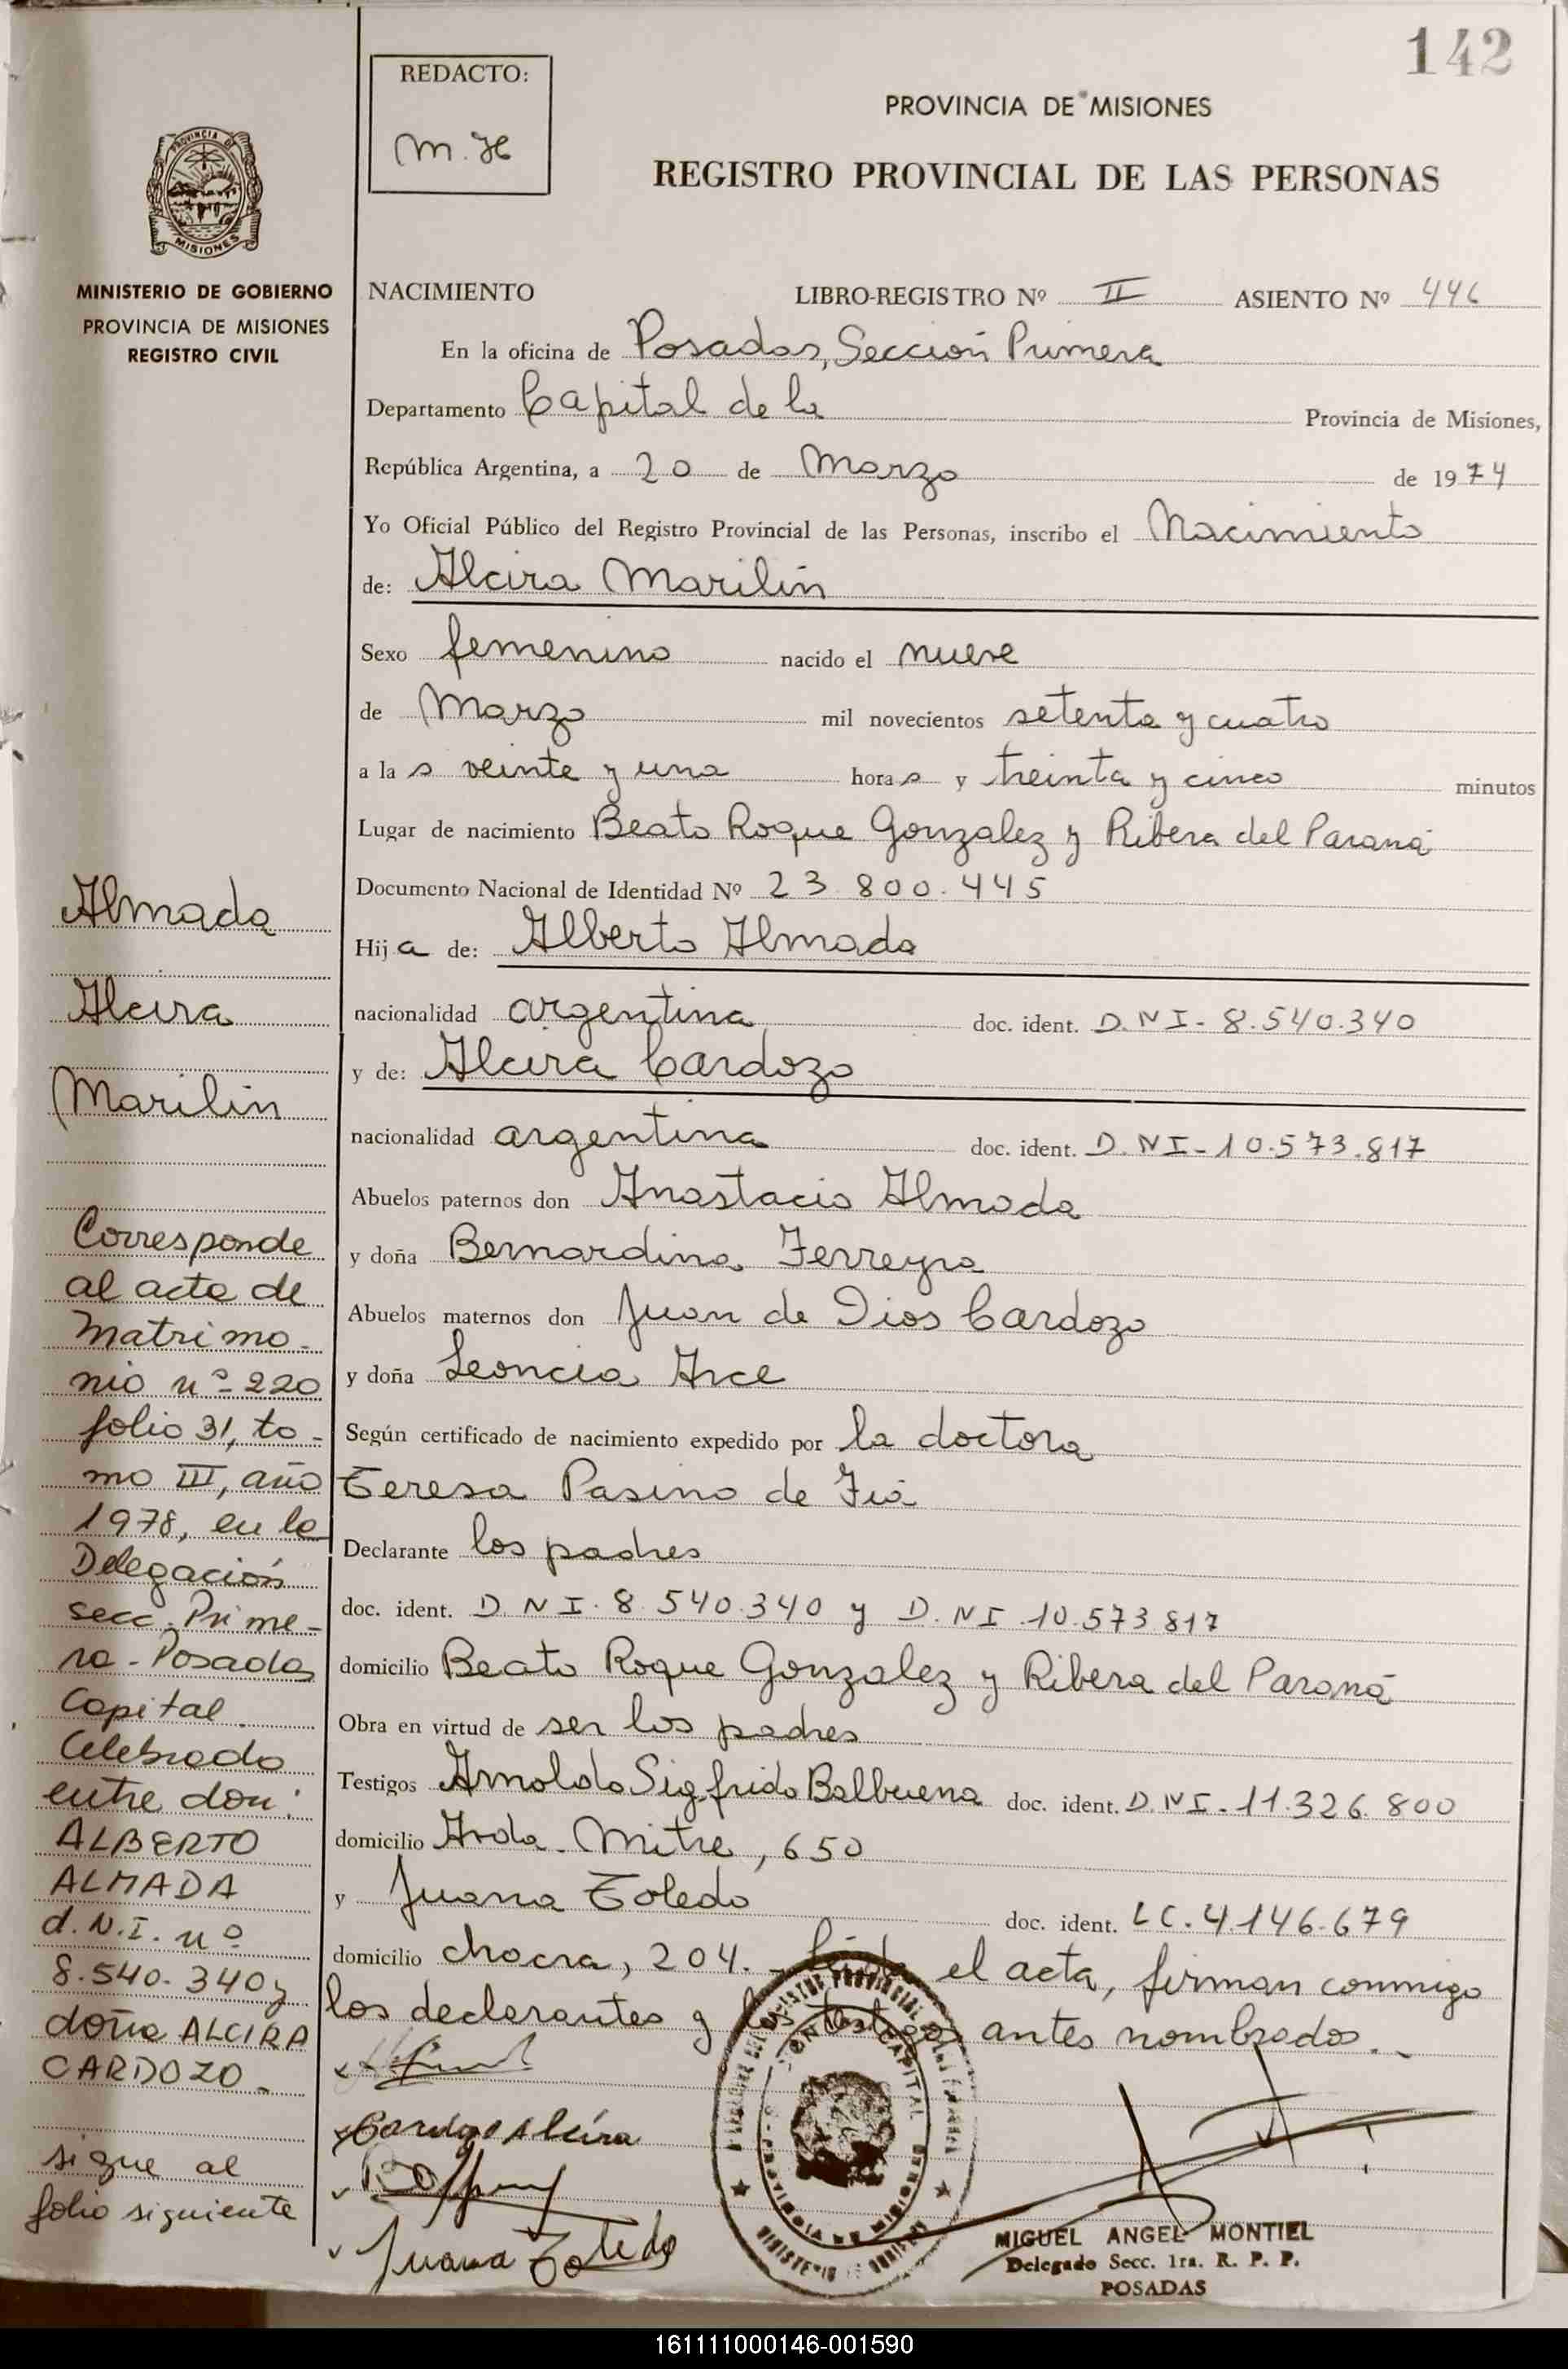 142
REDACTO:
M. H
PROVINCIA DE MISIONES
REGISTRO PROVINCIAL DE LAS PERSONAS
PROVINCIA DE
MISIONES
MINISTERIO DE GOBIERNO
PROVINCIA DE MISIONES
REGISTRO CIVIL
NACIMIENTO LIBRO-REGISTRO Nº II ASIENTO Nº 446
En la oficina de Posadas, Sección Primera
Departamento Capital de la Provincia de Misiones,
República Argentina, a 20 de Marzo de 1974
Yo Oficial Público del Registro Provincial de las Personas, inscribo el Nacimiento
de: Alcira Marilin
Sexo femenino nacido el nueve
de Marzo mil novecientos setenta y cuatro
a la s veinte y una hora s y treinta y cinco minutos
Lugar de nacimiento Beato Roque Gonzalez y Ribera del Paraná
Documento Nacional de Identidad Nº 23.800.445
Hij a de: Alberto Almada
nacionalidad argentina doc. ident. D.N I- 8.540.340
y de: Alcira Cardozo
nacionalidad argentina doc. ident. D. N I- 10.573.817
Abuelos paternos don Anastacio Almada
y doña Bernardina Ferreyra
Abuelos maternos don Juan de Dios Cardozo
y doña Leoncia Arce
Según certificado de nacimiento expedido por la doctora
Teresa Pasino de
Declarante los padres
doc. ident. D. N I. 8.540.340 y D. N I. 10.573.817
domicilio Beato Roque Gonzalez y Ribera del Paraná
Obra en virtud de ser los padres
Testigos Arnoldo Sigfrido Balbuena doc. ident. D. N I. 11.326.800
domicilio Avda. Mitre, 650
y Juana Toledo doc. ident. L C. 4.146.679
domicilio chacra, 204.- Leída el acta, firman conmigo
los declarantes y los testigos antes nombrados.-
Cardozo Alcira
Juana Toledo
MIGUEL ANGEL MONTIEL
Delegado Secc. 1ra. R. P. P.
POSADAS
Almada
Alcira
Marilin
Corresponde
al acta de
Matrimo-
nio nº 220
folio 31, to-
mo III, año
1978, en la
Delegación
secc. Prime-
ra - Posadas
Capital.
Celebrado
entre don:
ALBERTO
ALMADA
d.N.I. nº
8.540.340 y
doña ALCIRA
CARDOZO.-
sigue al
folio siguiente
161111000146-001590